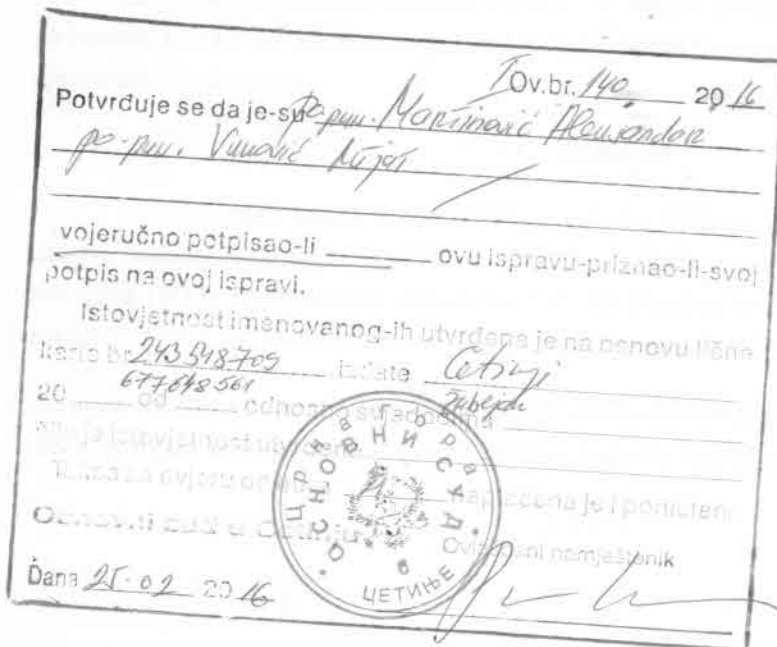 I Ov.br. 140 2016
Potvrđuje se da je-su po pun. Martinović Aleksandar
po-pun. Vuković
vojeručno potpisao-li ovu ispravu-priznao-li-svoj
potpis na ovoj ispravi.
Istovjetnost imenovanog-ih utvrđena je na osnovu lične
karte br. 243548709 izdate Cetinji
677648561 Žabljak
20 od odnosno svjedocima
čija je istovjetnost utvrđena
Taksa za ovjeru od naplaćena je i poništena
Osnovni sud u Cetinju
Ovlašćeni namještenik
Dana 25-02 2016
Црна Гора
ОСНОВНИ СУД
ЦЕТИЊЕ